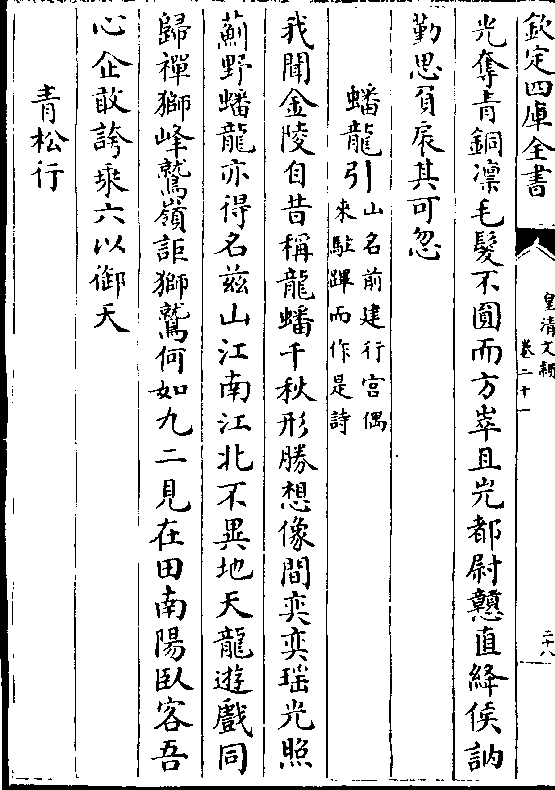 欽定四庫全書
皇清文穎
卷二十一
二十八
光奪青銅凛毛髮不圓而方崒且屼都尉戇直絳侯訥
勤思負扆其可忽
蟠龍引
山名前建行宫偶
來駐蹕而作是詩
我聞金陵自昔稱龍蟠千秋形勝想像間奕奕瑶光照
薊野蟠龍亦得名兹山江南江北不異地天龍遊戲同
歸禪獅峰鷲嶺詎獅鷲何如九二見在田南陽臥客吾
心企敢誇乘六以御天
青松行